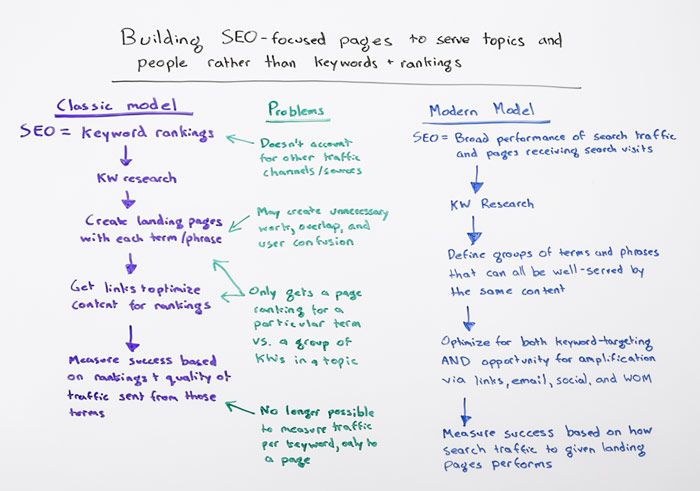 Building SEO-focused pages to serve topics and
people rather than keywords + rankings
Classic model
SEO = Keyword rankings
KW research
Create landing pages
with each term/phrase
Get links + optimize
content for rankings
Measure success based
on rankings + quality of
traffic sent from those
terms
Problems
Doesn't account
for other traffic
channels/sources
May create unnecessary
work, overlap, and
user confusion
Only gets a page
ranking for a
particular term
vs. a group of
KWs in a topic
No longer possible
to measure traffic
per keyword, only to
a page
Modern Model
SEO = Broad performance of search traffic
and pages receiving search visits
KW Research
Define groups of terms and phrases
that can all be well-served by
the same content
Optimize for both keyword-targeting
AND opportunity for amplification
via links, email, social, and WOM
Measure success based on how
search traffic to given landing
pages performs